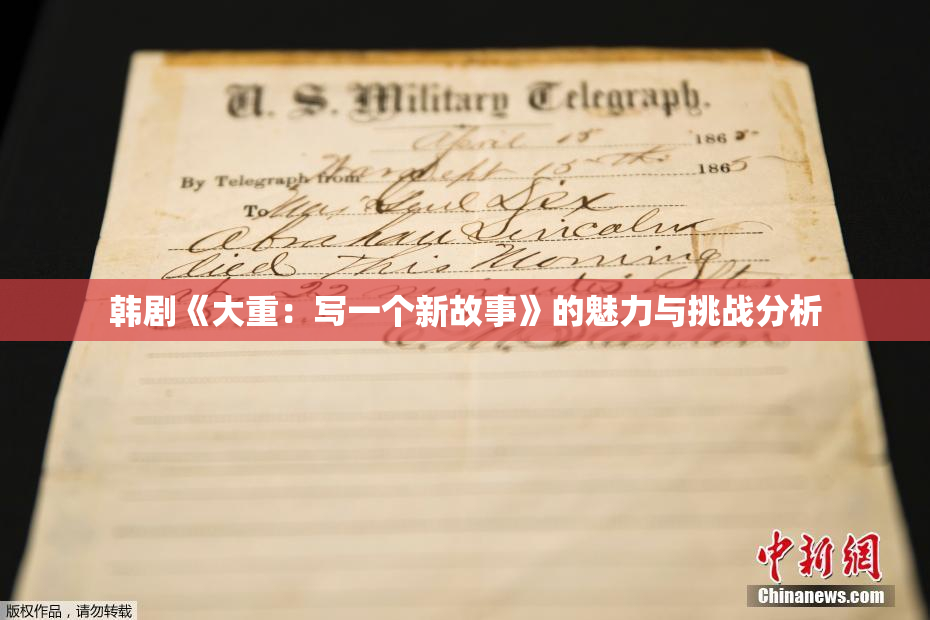 U. S. Military Telegraph.
April 15 1865
By Telegraph from War Dept 15th 1865
To Maj Genl Dix
Abraham Lincoln
died This Morning
at 22 minutes after
韩剧《大重：写一个新故事》的魅力与挑战分析
E. M. Stanton
中新网
Chinanews.com
版权作品，请勿转载